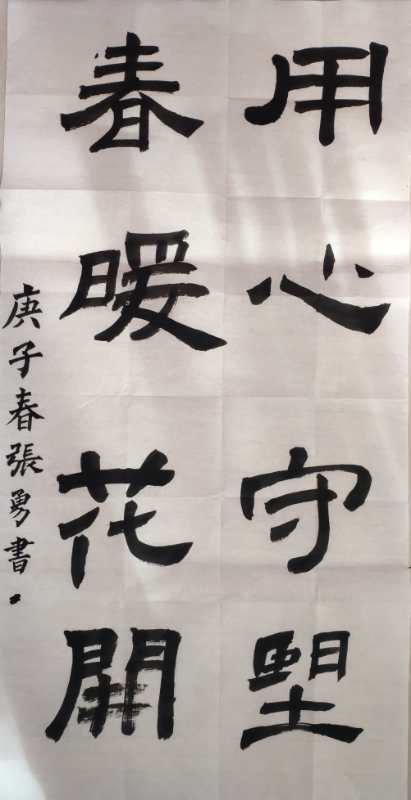 用心守朢
春暖花開
庚子春張勇書